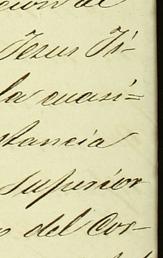 cion de
Jesus Ti-
la cuasi=
stancia
Superior
o del Cor-